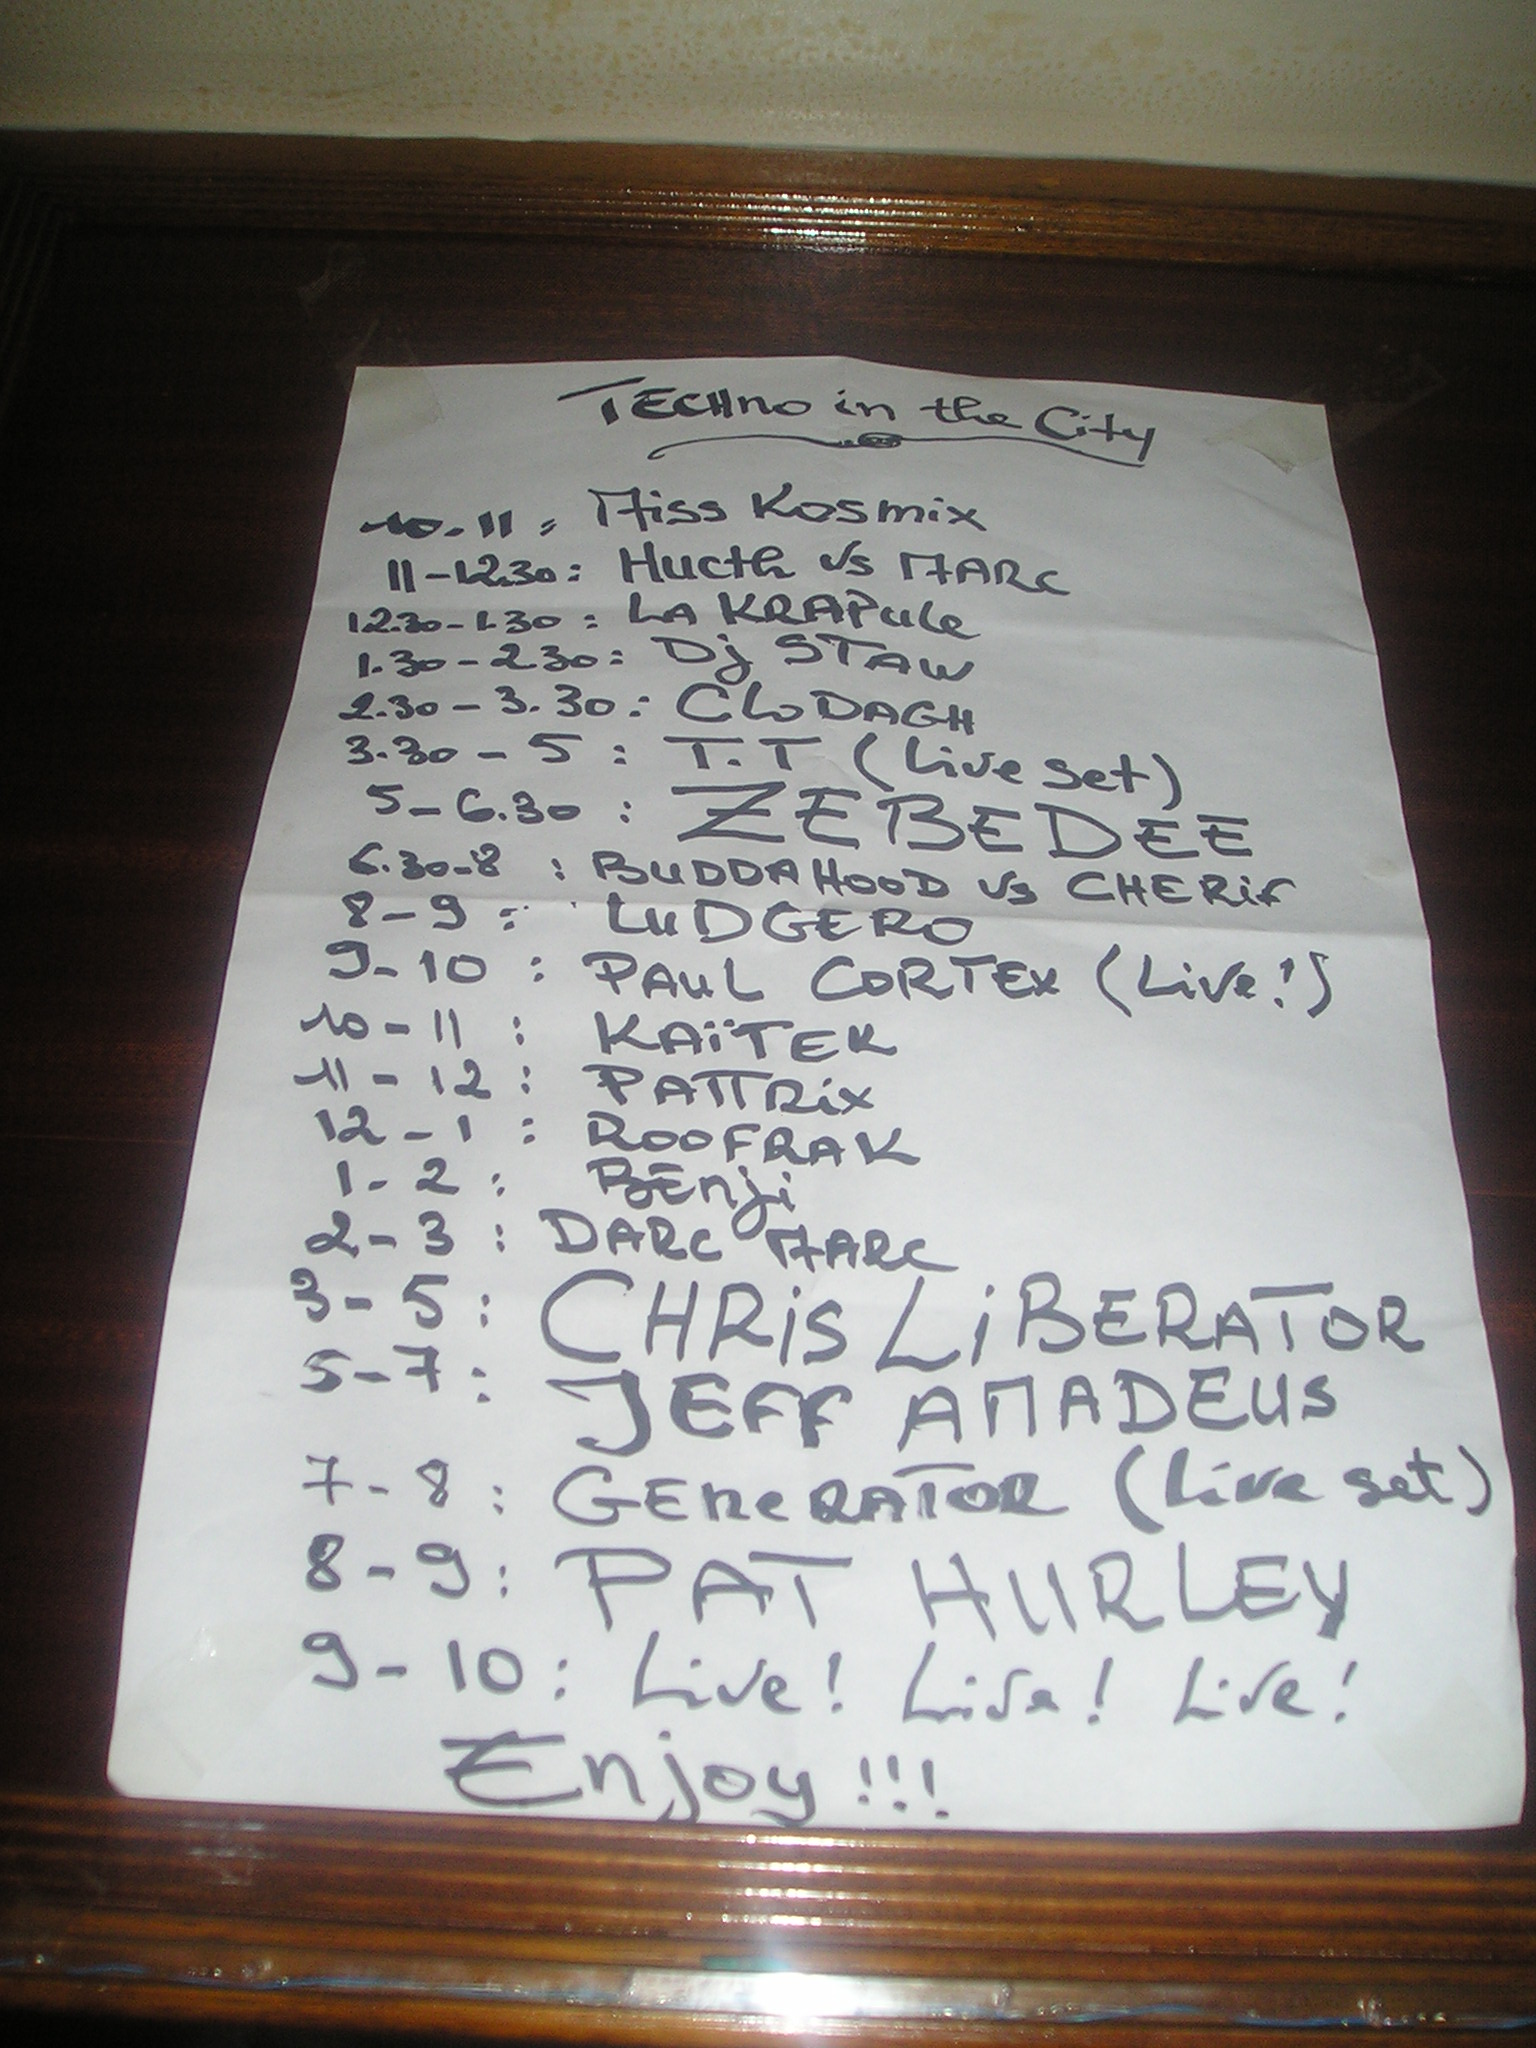 TECHno in the City
10-11: Miss Kosmix
11-12.30: Hucth vs MARC
12.30-1.30: LA KRAPule
1.30-2.30: Dj STAW
2.30-3.30: CLoDAGH
3.30-5: T.T (Live set)
5-6.30: ZEBEDEE
6.30-8: BUDDAHOOD vs CHERif
8-9: LUDGERO
9-10: PAUL CORTEX (Live!)
10-11: KAïTEK
11-12: PATTRix
12-1: ROOFRAK
1-2: BEnji
2-3: DARC MARC
3-5: CHRiS LiBERATOR
5-7: JEFF AMADEUS
7-8: GEneRATOR (Live set)
8-9: PAT HURLEY
9-10: Live! Live! Live!
Enjoy!!!